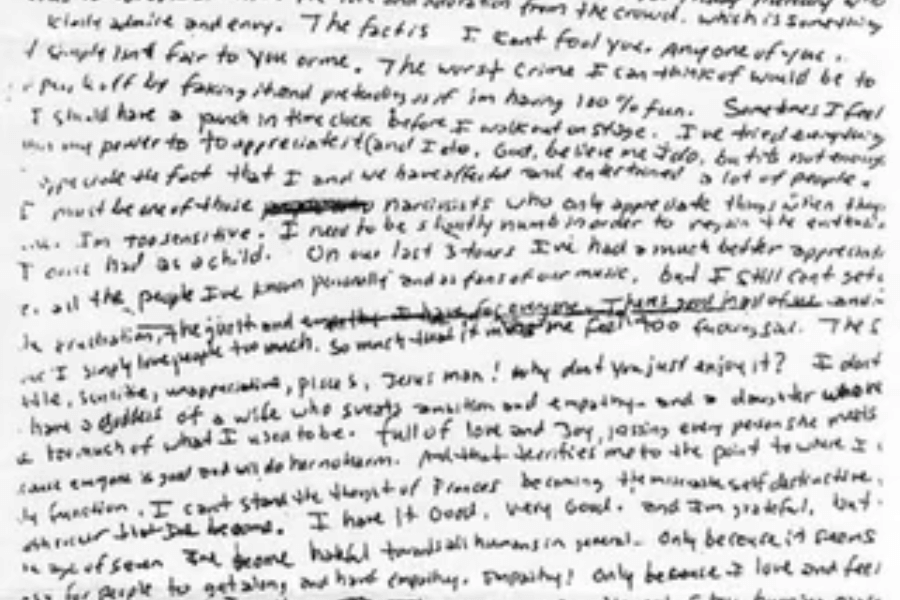 from the crowd. which is something
kinda admire and envy. The fact is I cant fool you. Any one of you.
simply isnt fair to you or me. The worst crime I can think of would be to
off by faking it and pretending as if im having 100% fun. Sometimes I feel
I should have a punch in time clock before I walk out on stage. I've tried everything
my power to to appreciate it (and I do, God, believe me I do, but its not enough
the fact that I and we have affected and entertained a lot of people.
I must be one of those narcissists who only appreciate things when they
Im too sensitive. I need to be slightly numb in order to regain the
I once had as a child. On our last 3 tours I've had a much better
all the people I've known personally and as fans of our music, but I still cant get
frustration, the guilt and empathy I have for everyone. Theres good in all of us and
I simply love people too much. So much that it makes me feel too fucking sad. The
sensitive, unappreciative, pisces, Jesus man! why dont you just enjoy it? I dont
have a goddess of a wife who sweats ambition and empathy. and a daughter
too much of what I used to be. full of love and Joy, every person she meets
everyone is good and will do her no harm. And that terrifies me to the point to where I
function. I cant stand the thought of Frances becoming the miserable self destructive,
that Ive become. I have it Good. very Good. and Im grateful, but
age of seven Ive become hateful towards all humans in general. Only because it seems
for people to get along and have empathy. Empathy! Only because I love and feel